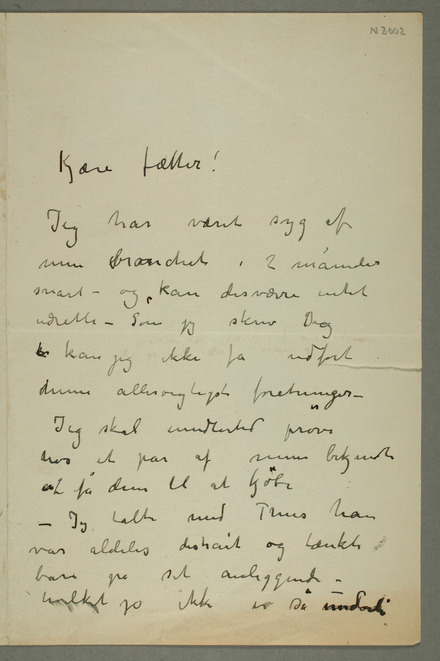 N 2002
Kjære fætter!
Jeg har været syg af
min bronchit i 2 måneder
snart – og kan desværre intet
udrette – Som jeg skrev Dig
kan jeg ikke få udført
denne allervigtigste foretninger –
Jeg skal imidlertid prøve
hos et par af mine bekjendte
at få dem til at kjöbe
– Jeg talte med Thiis han
var aldeles distrait og tænkte
bare på sit anliggende –
hvilket jo ikke er så underli